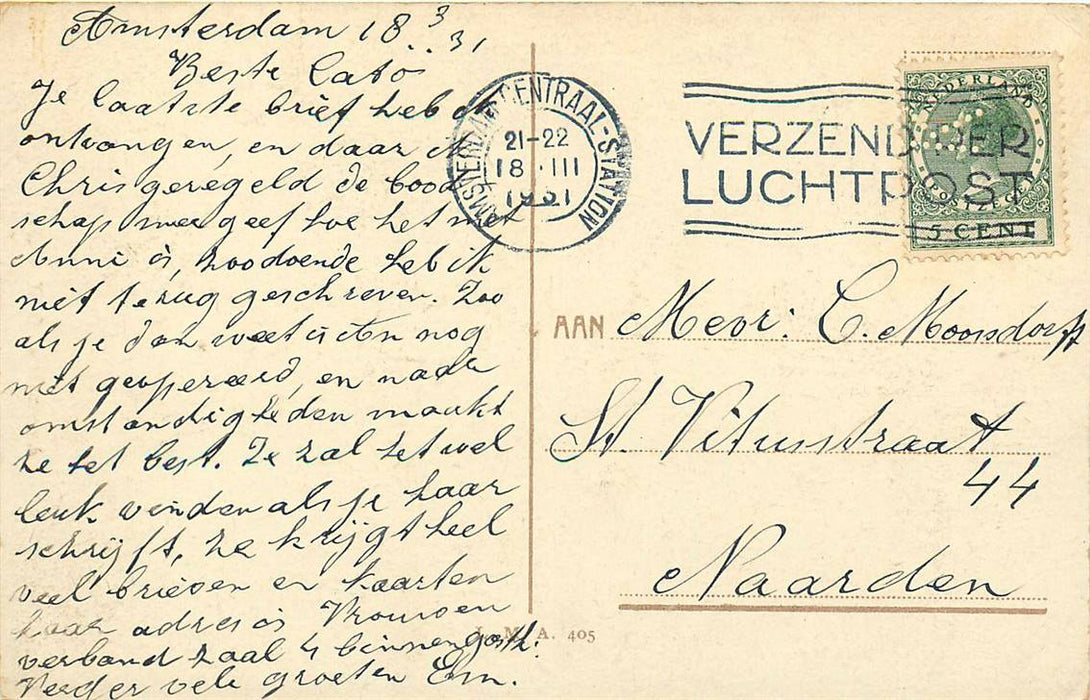 Amsterdam 18 3 31
Beste Cato
Je laatste brief heb ik
ontvangen, en daar ik
Chris geregeld de bood
schap meegeef hoe het met
Anni is, zoodoende heb ik
niet terug geschreven. Zoo
als je dan weet is An nog
niet geopereerd, en naar
omstandigheden maakt
ze het best. Ze zal het wel
leuk vinden als je haar
schrijft, ze krijgt heel
veel brieven en kaarten
haar adres is Vrouwen
verband zaal 4 binnengasth:
Verder vele groeten Em.
AMSTERDAM CENTRAAL-STATION
21-22
18 III
1931
VERZEND PER
LUCHTPOST
NEDERLAND
POSTZEGEL
5 CENT
AAN Mevr: C. Moorsdorff
St. Vitusstraat
44
Naarden
L. M. A. 405